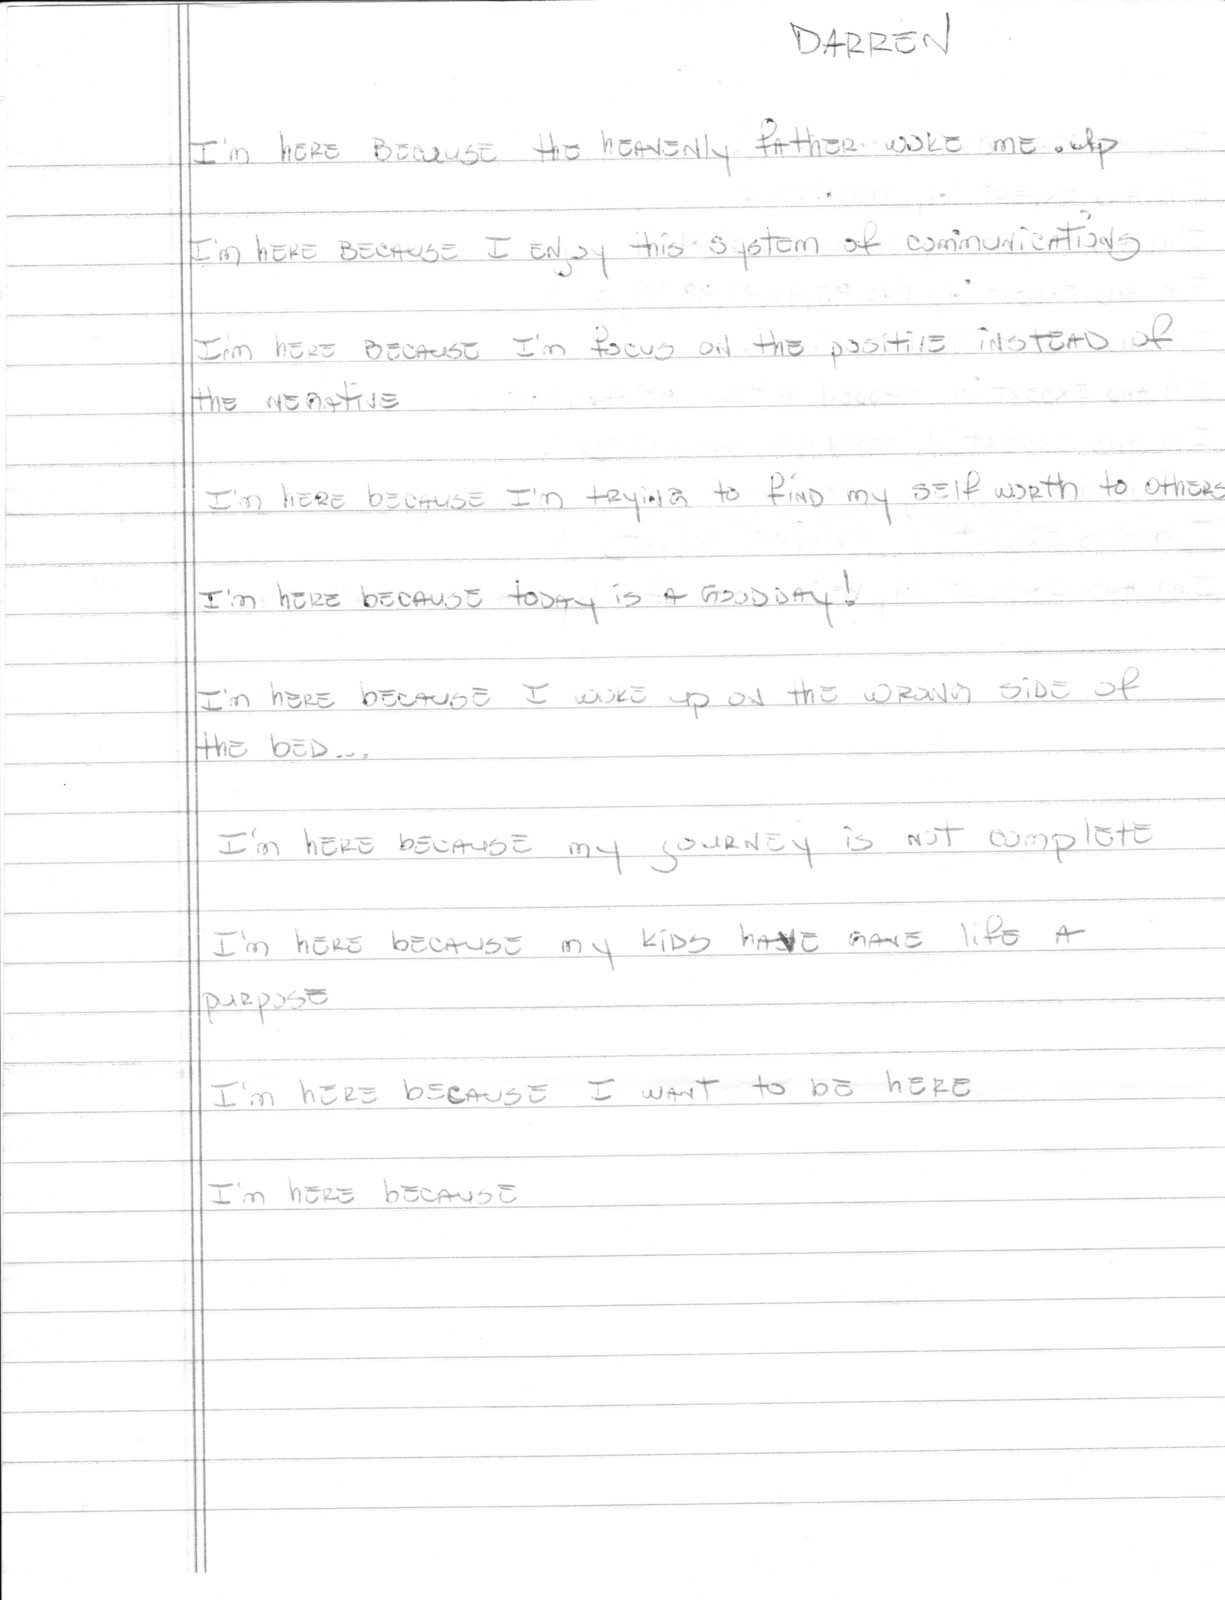 DARREN
I'm hERE BECAUSE thE hEAVENly fAthER WOKE mE up
I'm hERE BECAUSE I ENJoy this system of communicATIONS
I'm hERE BECAUSE I'm focus on thE positivE iNSTEAD of
thE NEGAtivE
I'm hERE bECAUSE I'm tRyiNG to fiND my SElf woRth to OthERS
I'm hERE bECAUSE toDAy is A GOODDAy!
I'm hERE bECAUSE I WOKE up oN thE WRONG SiDE of
thE bED...
I'm hERE bECAUSE my JOURNEY is NOT complEtE
I'm hERE bECAUSE my KiDS hAVE GAVE lifE A
puRposE
I'm hERE bECAUSE I WANT to bE hERE
I'm hERE bECAUSE